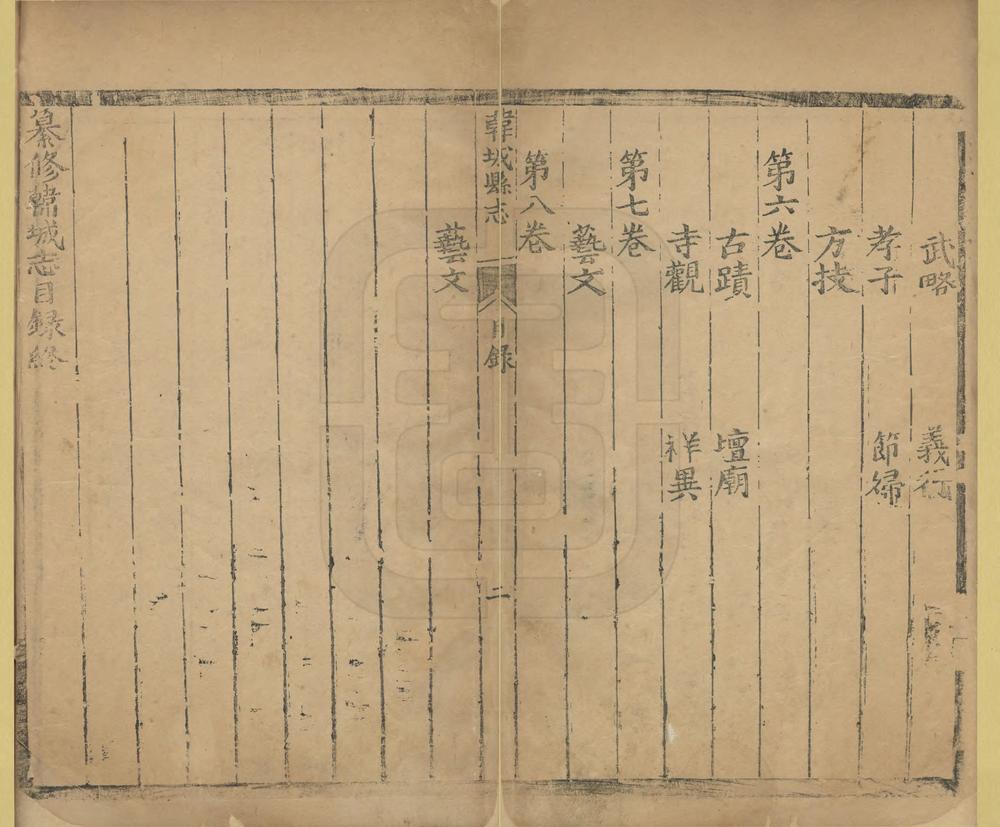 武略　義行
孝子　節婦
方技
第六卷
古蹟　壇廟
寺觀　祥異
第七卷
藝文
第八卷
韓城縣志　目録　二
藝文
纂修韓城志目録終